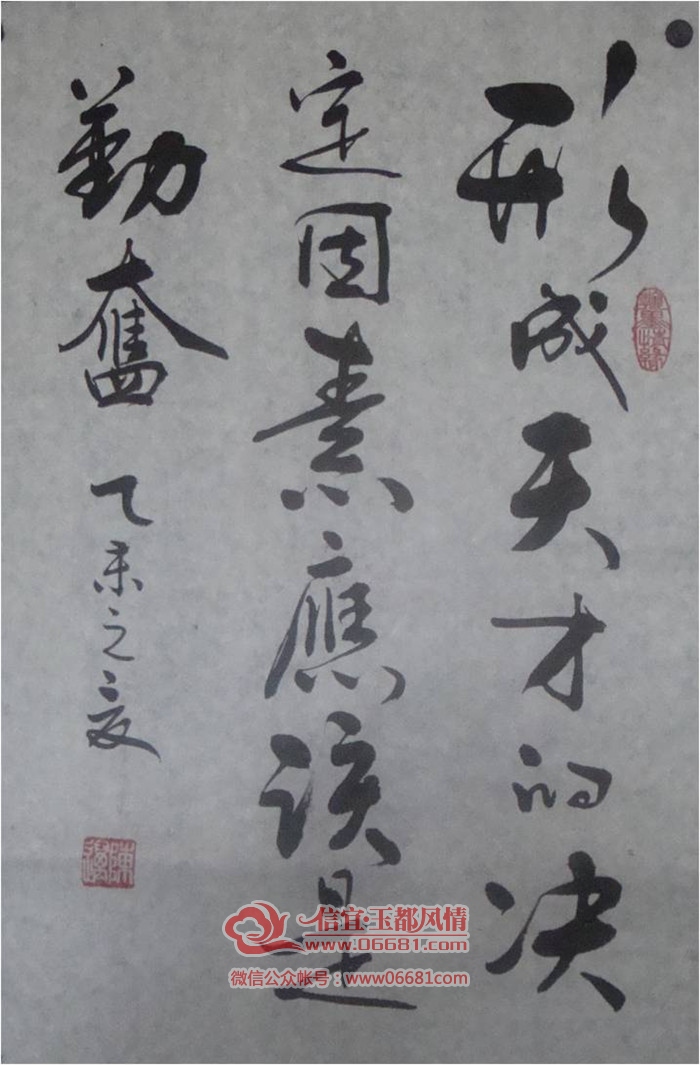 形成天才的决
定因素應該是
勤奮
乙未之夏
信宜·玉都风情
www.06681.com
微信公众帐号：www06681com